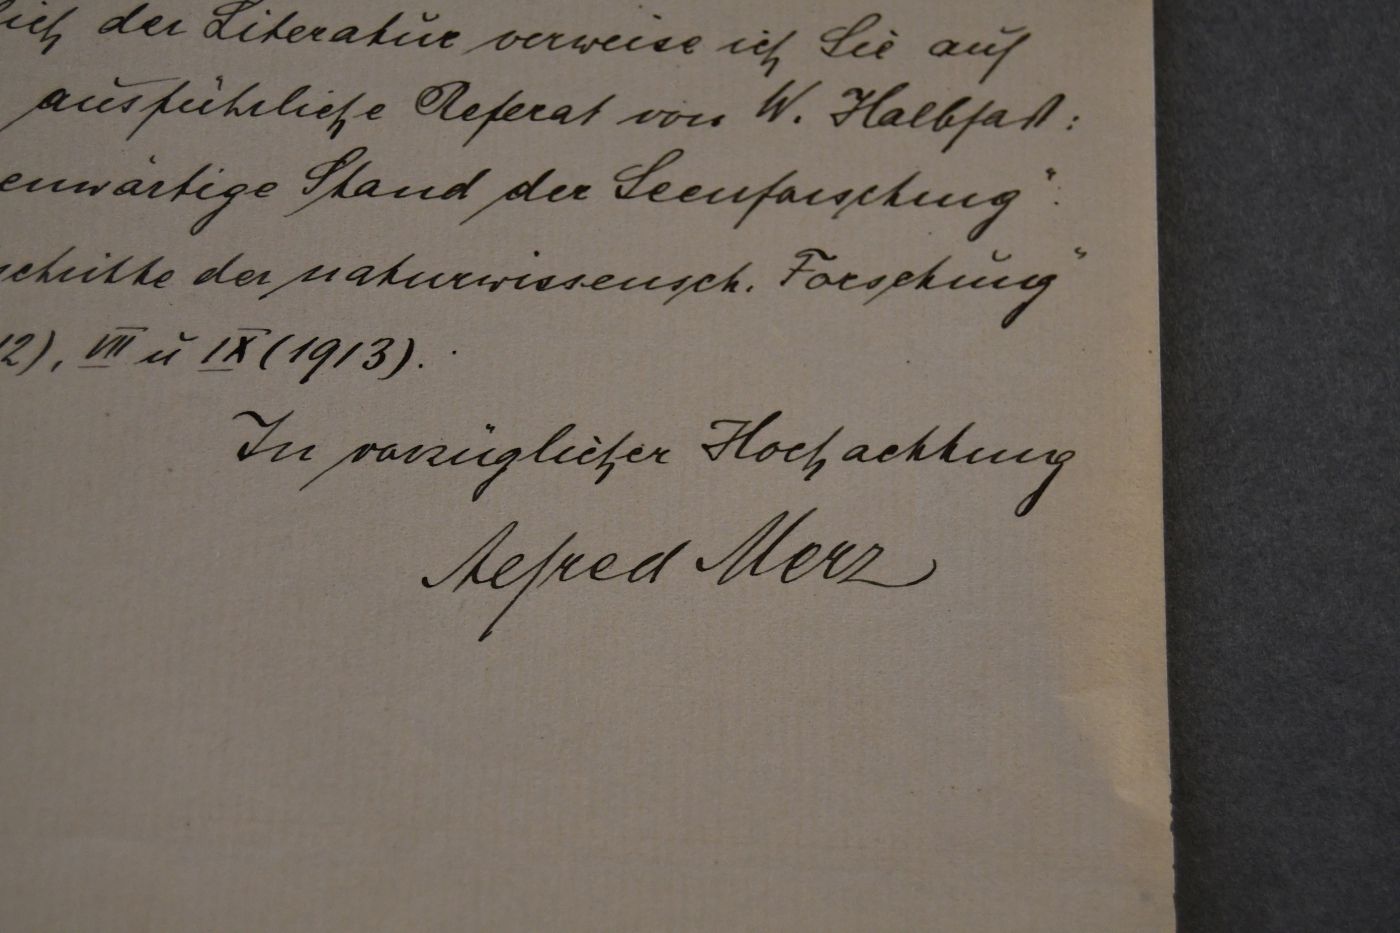 lich der Literatur verweise ich Sie auf
ausführliche Referat von W. Halbfaß:
enwärtige Stand der Seenforschung":
schritte der naturwissensch. Forschung"
12), VII u IX (1913).
In vorzüglicher Hochachtung
Alfred Merz